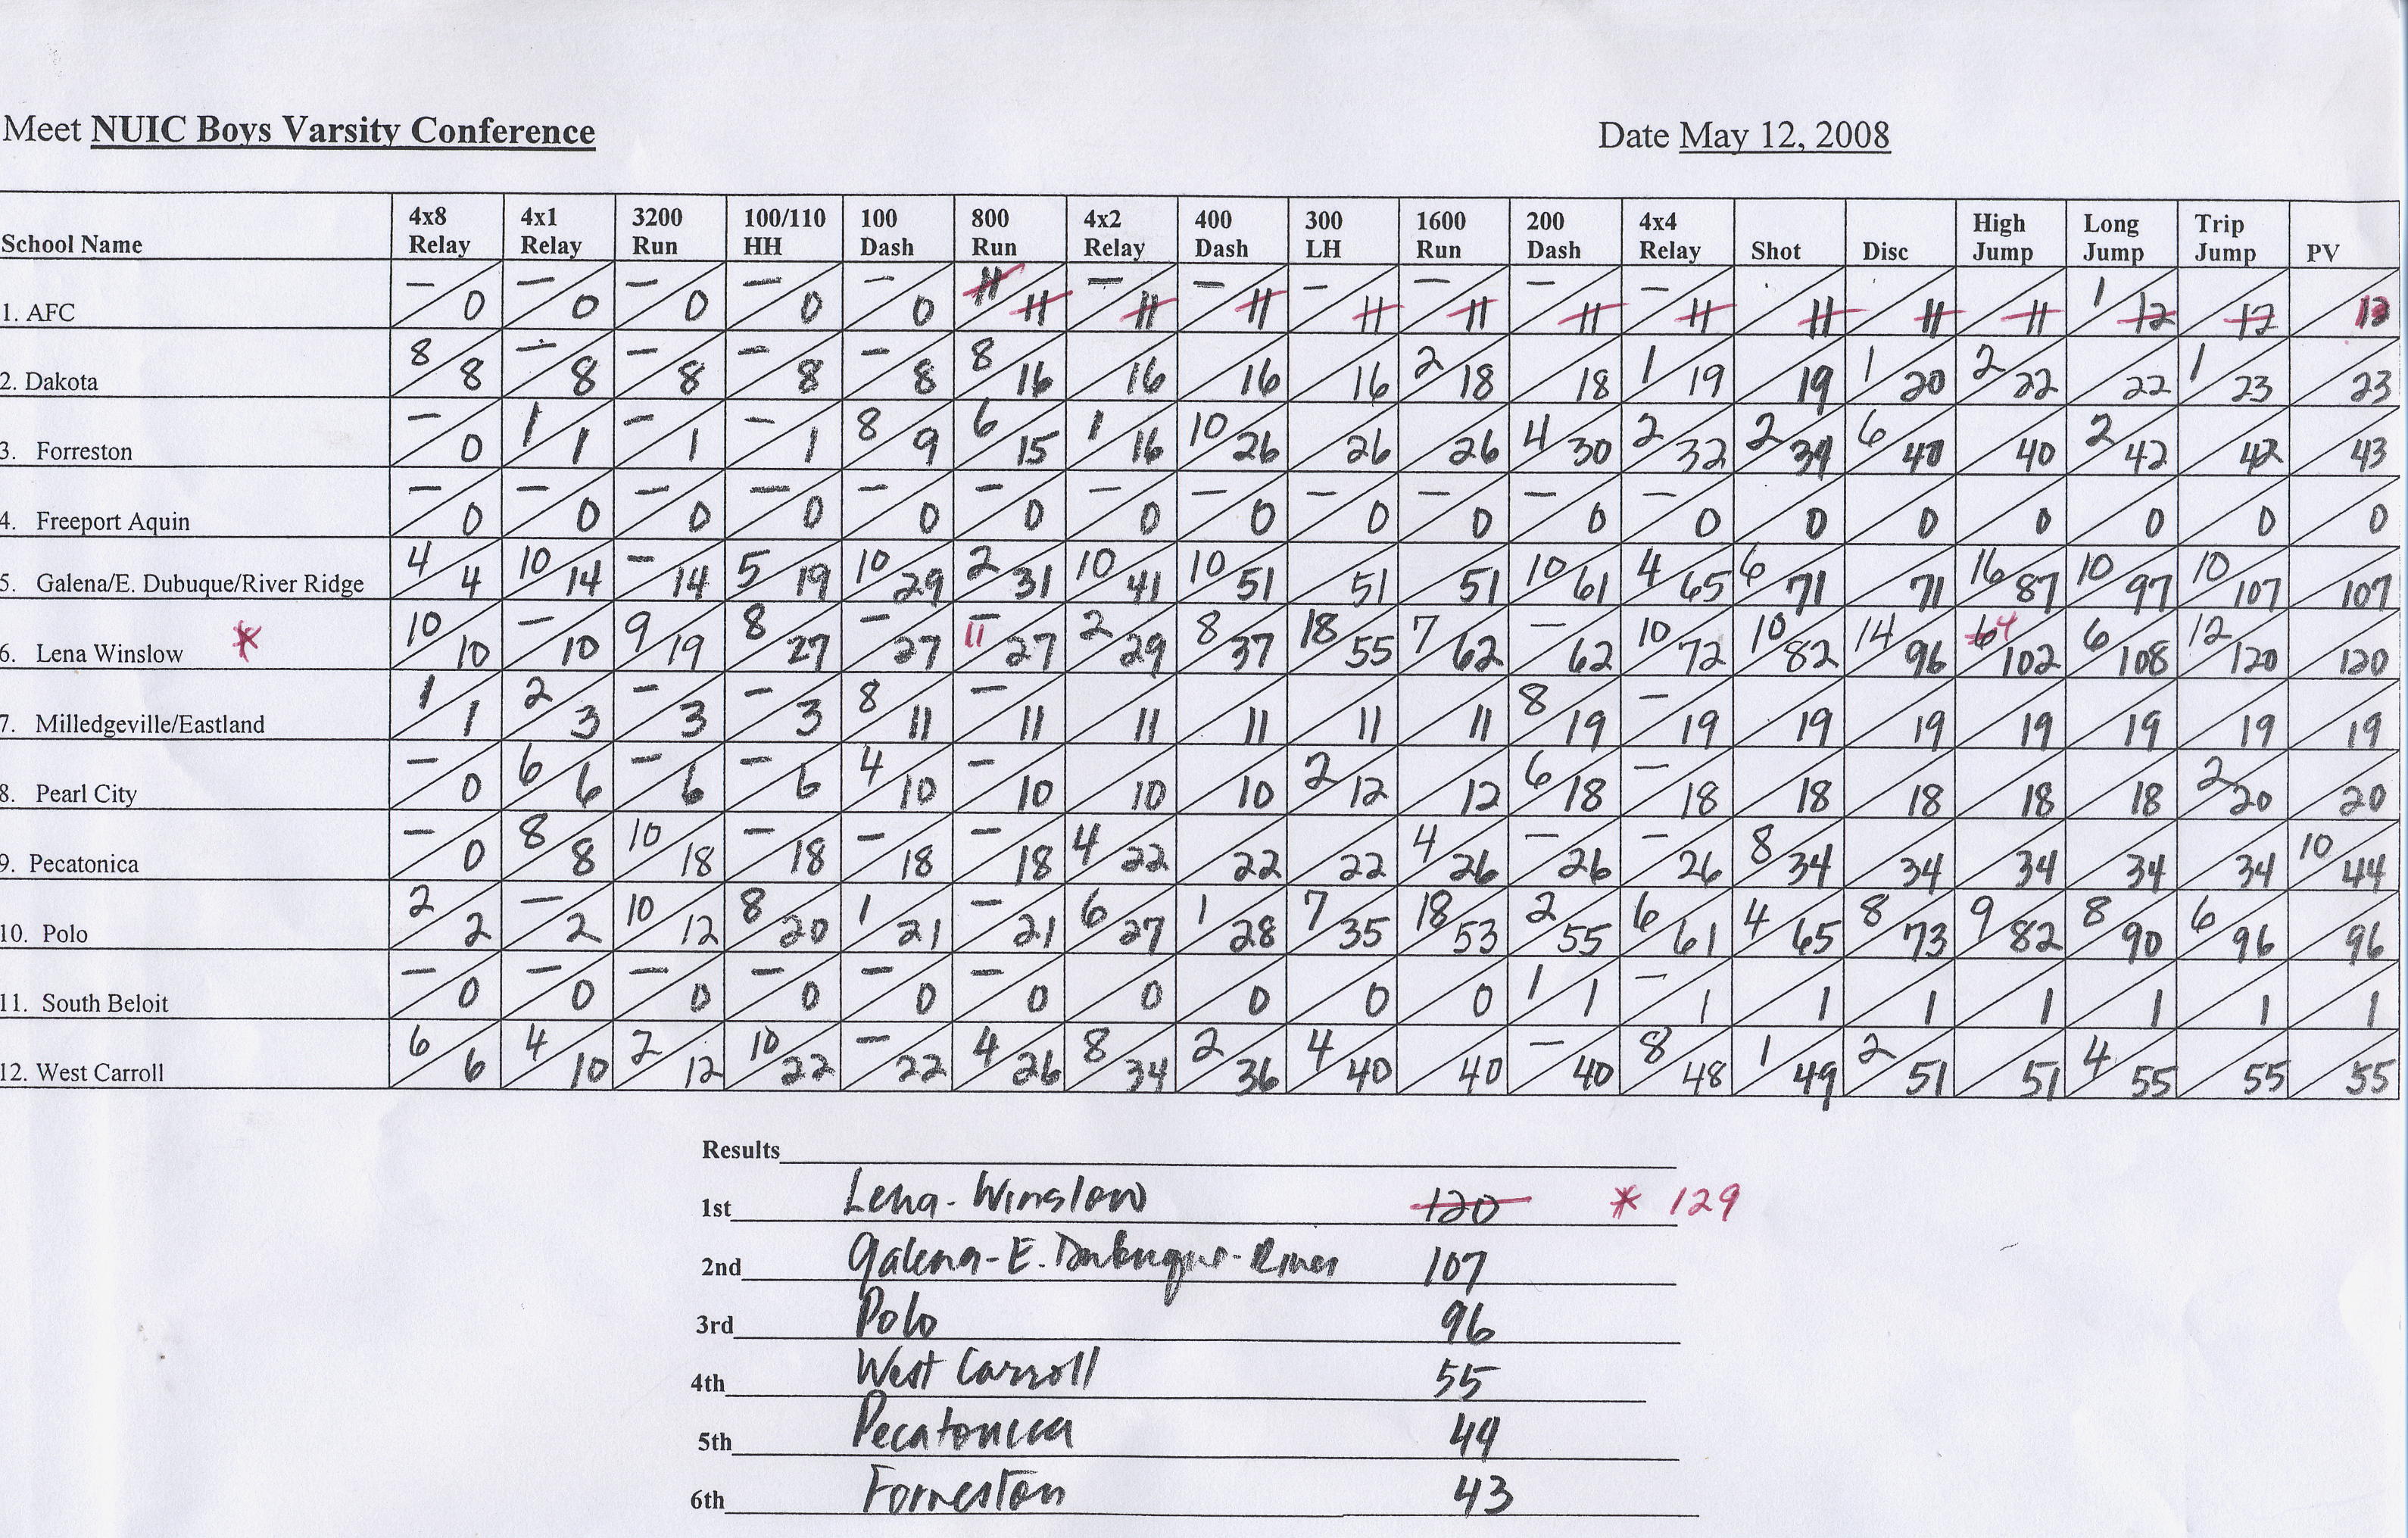 Meet NUIC Boys Varsity Conference Date May 12, 2008
School Name 4x8 Relay 4x1 Relay 3200 Run 100/110 HH 100 Dash 800 Run 4x2 Relay 400 Dash 300 LH 1600 Run 200 Dash 4x4 Relay Shot Disc High Jump Long Jump Trip Jump PV
1. AFC –/0 –/0 –/0 –/0 –/0 11/11 –/11 –/11 –/11 –/11 –/11 –/11 /11 /11 /11 1/12 /12
2. Dakota 8/8 –/8 –/8 –/8 –/8 8/16 /16 /16 /16 2/18 /18 1/19 /19 1/20 2/22 /22 1/23 /23
3. Forreston –/0 1/1 –/1 –/1 8/9 6/15 1/16 10/26 /26 /26 4/30 2/32 2/34 6/40 /40 2/42 /42 /43
4. Freeport Aquin –/0 –/0 –/0 –/0 –/0 –/0 –/0 –/0 –/0 –/0 –/0 –/0 /0 /0 /0 /0 /0 /0
5. Galena/E. Dubuque/River Ridge 4/4 10/14 –/14 5/19 10/29 2/31 10/41 10/51 /51 /51 10/61 4/65 6/71 /71 16/87 10/97 10/107 /107
6. Lena Winslow * 10/10 –/10 9/19 8/27 –/27 – 11/27 2/29 8/37 18/55 7/62 –/62 10/72 10/82 14/96 6 4/102 6/108 12/120 /120
7. Milledgeville/Eastland 1/1 2/3 –/3 –/3 8/11 –/11 /11 /11 /11 /11 8/19 –/19 /19 /19 /19 /19 /19 /19
8. Pearl City –/0 6/6 –/6 –/6 4/10 –/10 /10 /10 2/12 /12 6/18 –/18 /18 /18 /18 /18 2/20 /20
9. Pecatonica –/0 8/8 10/18 –/18 –/18 –/18 4/22 /22 /22 4/26 –/26 –/26 8/34 /34 /34 /34 /34 10/44
10. Polo 2/2 –/2 10/12 8/20 1/21 –/21 6/27 1/28 7/35 18/53 2/55 6/61 4/65 8/73 9/82 8/90 6/96 /96
11. South Beloit –/0 –/0 –/0 –/0 –/0 –/0 /0 /0 /0 /0 1/1 –/1 /1 /1 /1 /1 /1 /1
12. West Carroll 6/6 4/10 2/12 10/22 –/22 4/26 8/34 2/36 4/40 /40 –/40 8/48 1/49 2/51 /51 4/55 /55 /55
Results
1st Lena-Winslow 120 * 129
2nd Galena-E. Dubuque-River 107
3rd Polo 96
4th West Carroll 55
5th Pecatonica 44
6th Forreston 43